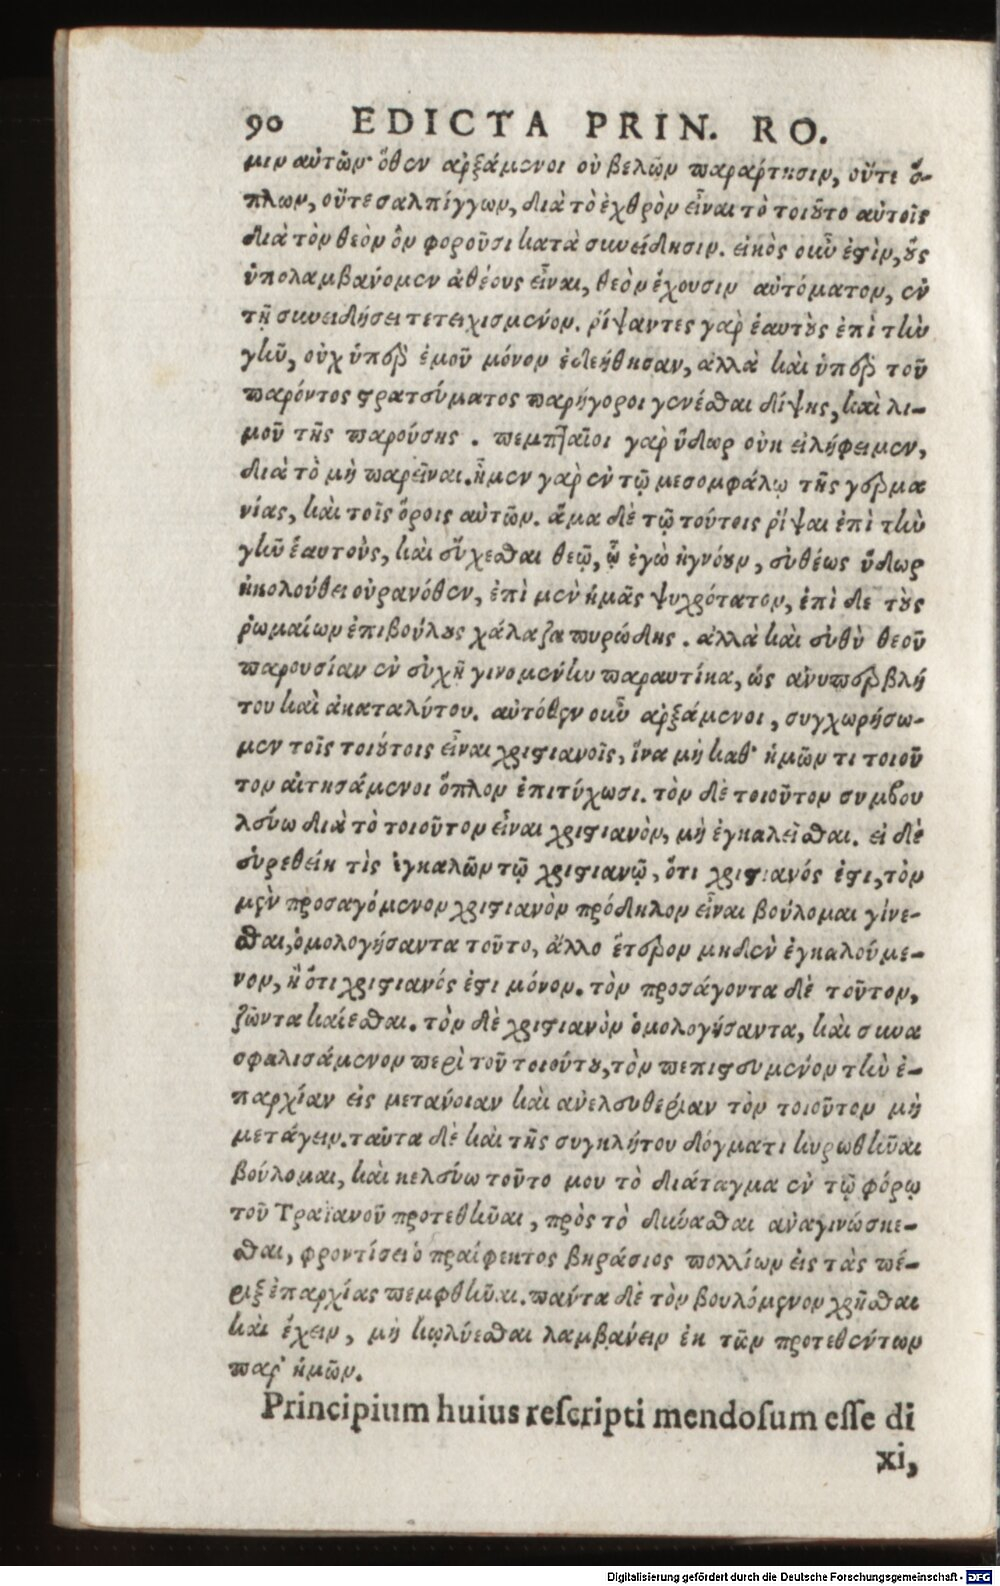 90 EDICTA PRIN. RO.
μιν αὐτῶν· ὅθεν ἀρξάμενοι οὐ βελῶν παράρτησιν, οὔτε ὅ-
πλων, οὔτε σαλπίγγων, διὰ τὸ ἐχθρὸν εἶναι τὸ τοιοῦτο αὐτοῖς
διὰ τὸν θεὸν ὃν φοροῦσι κατὰ συνείδησιν. εἰκὸς οὖν ἐστὶν, οὓς
ὑπολαμβάνομεν ἀθέους εἶναι, θεὸν ἔχουσιν αὐτόματον, ἐν
τῇ συνειδήσει τετειχισμένον. ῥίψαντες γὰρ ἑαυτοὺς ἐπὶ τὴν
γῆν, οὐχ ὑπὲρ ἐμοῦ μόνον ἐδεήθησαν, ἀλλὰ καὶ ὑπὲρ τοῦ
παρόντος στρατεύματος παρήγοροι γενέσθαι δίψης, καὶ λι-
μοῦ τῆς παρούσης. πεμπταῖοι γὰρ ὕδωρ οὐκ εἰλήφειμεν,
διὰ τὸ μὴ παρεῖναι. ἦμεν γὰρ ἐν τῷ μεσομφάλῳ τῆς γερμα
νίας, καὶ τοῖς ὅροις αὐτῶν. ἅμα δὲ τῷ τούτοις ῥίψαι ἐπὶ τὴν
γῆν ἑαυτοὺς, καὶ εὔχεσθαι θεῷ, ᾧ ἐγὼ ἠγνόουν, εὐθέως ὕδωρ
ἠκολούθει οὐρανόθεν, ἐπὶ μὲν ἡμᾶς ψυχρότατον, ἐπὶ δε τοὺς
ῥωμαίων ἐπιβούλους χάλαζα πυρώδης. ἀλλὰ καὶ εὐθὺ θεοῦ
παρουσίαν ἐν εὐχῇ γινομένην παραυτίκα, ὡς ἀνυπερβλή
του καὶ ἀκαταλύτου. αὐτόθεν οὖν ἀρξάμενοι, συγχωρήσω-
μεν τοῖς τοιούτοις εἶναι χριστιανοῖς, ἵνα μὴ καθ' ἡμῶν τι τοιοῦ
τον αἰτησάμενοι ὅπλον ἐπιτύχωσι. τὸν δὲ τοιοῦτον συμβου
λεύω διὰ τὸ τοιοῦτον εἶναι χριστιανὸν, μὴ ἐγκαλεῖσθαι. εἰ δὲ
εὑρεθείη τὶς ἐγκαλῶν τῷ χριστιανῷ, ὅτι χριστιανός ἐστι, τὸν
μὲν προσαγόμενον χριστιανὸν πρόδηλον εἶναι βούλομαι γίνε-
σθαι, ὁμολογήσαντα τοῦτο, ἄλλο ἕτερον μηδὲν ἐγκαλούμε-
νον, ἢ ὅτι χριστιανός ἐστι μόνον. τὸν προσάγοντα δὲ τοῦτον,
ζῶντα καίεσθαι. τὸν δὲ χριστιανὸν ὁμολογήσαντα, καὶ συνα
σφαλισάμενον περὶ τοῦ τοιούτου, τὸν πεπιστευμένον τὴν ἐ-
παρχίαν εἰς μετάνοιαν καὶ ἀνελευθερίαν τὸν τοιοῦτον μὴ
μετάγειν. ταῦτα δὲ καὶ τῆς συγκλήτου δόγματι κυρωθῆναι
βούλομαι, καὶ κελεύω τοῦτο μου τὸ διάταγμα ἐν τῷ φόρῳ
τοῦ Τραϊανοῦ προτεθῆναι, πρὸς τὸ δύνασθαι ἀναγινώσκε-
σθαι, φροντίσει ὁ πραίφεκτος βηράσιος πολλίων εἰς τὰς πέ-
ριξ ἐπαρχίας πεμφθῆναι. πάντα δὲ τὸν βουλόμενον χρῆσθαι
καὶ ἔχειν, μὴ κωλύεσθαι λαμβάνειν ἐκ τῶν προτεθέντων
παρ' ἡμῶν.
Principium huius reſcripti mendoſum eſſe di
xi,
Digitalisierung gefördert durch die Deutsche Forschungsgemeinschaft - DFG